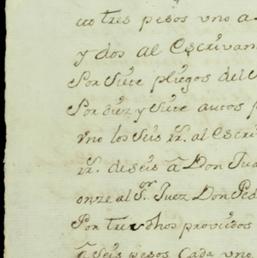 tres pesos uno a
y dos al Escrivan
Por Siete pliegos del S
Por diez y Siete autos p
uno los Seis rr. al Escri
rr. de seis â Don Jua
onze al Sor. Juez Don Ped
Por tres dhos proveidos
â Seis pesos Cada uno